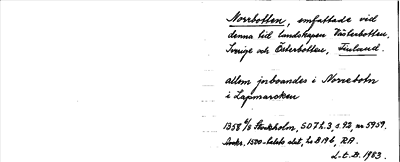 Norrbotten, omfattade vid
denna tid landskapen Västerbotten,
Sverige och Österbotten, Finland.
allom jnboandes i Norrebotn
i Lapmarcken
1358 6/8 Stockholm, SD 7 h. 3, s. 92, nr 5959.
Avskr. 1500-talets slut, hs B 196, RA.
L.t.B. 1983.